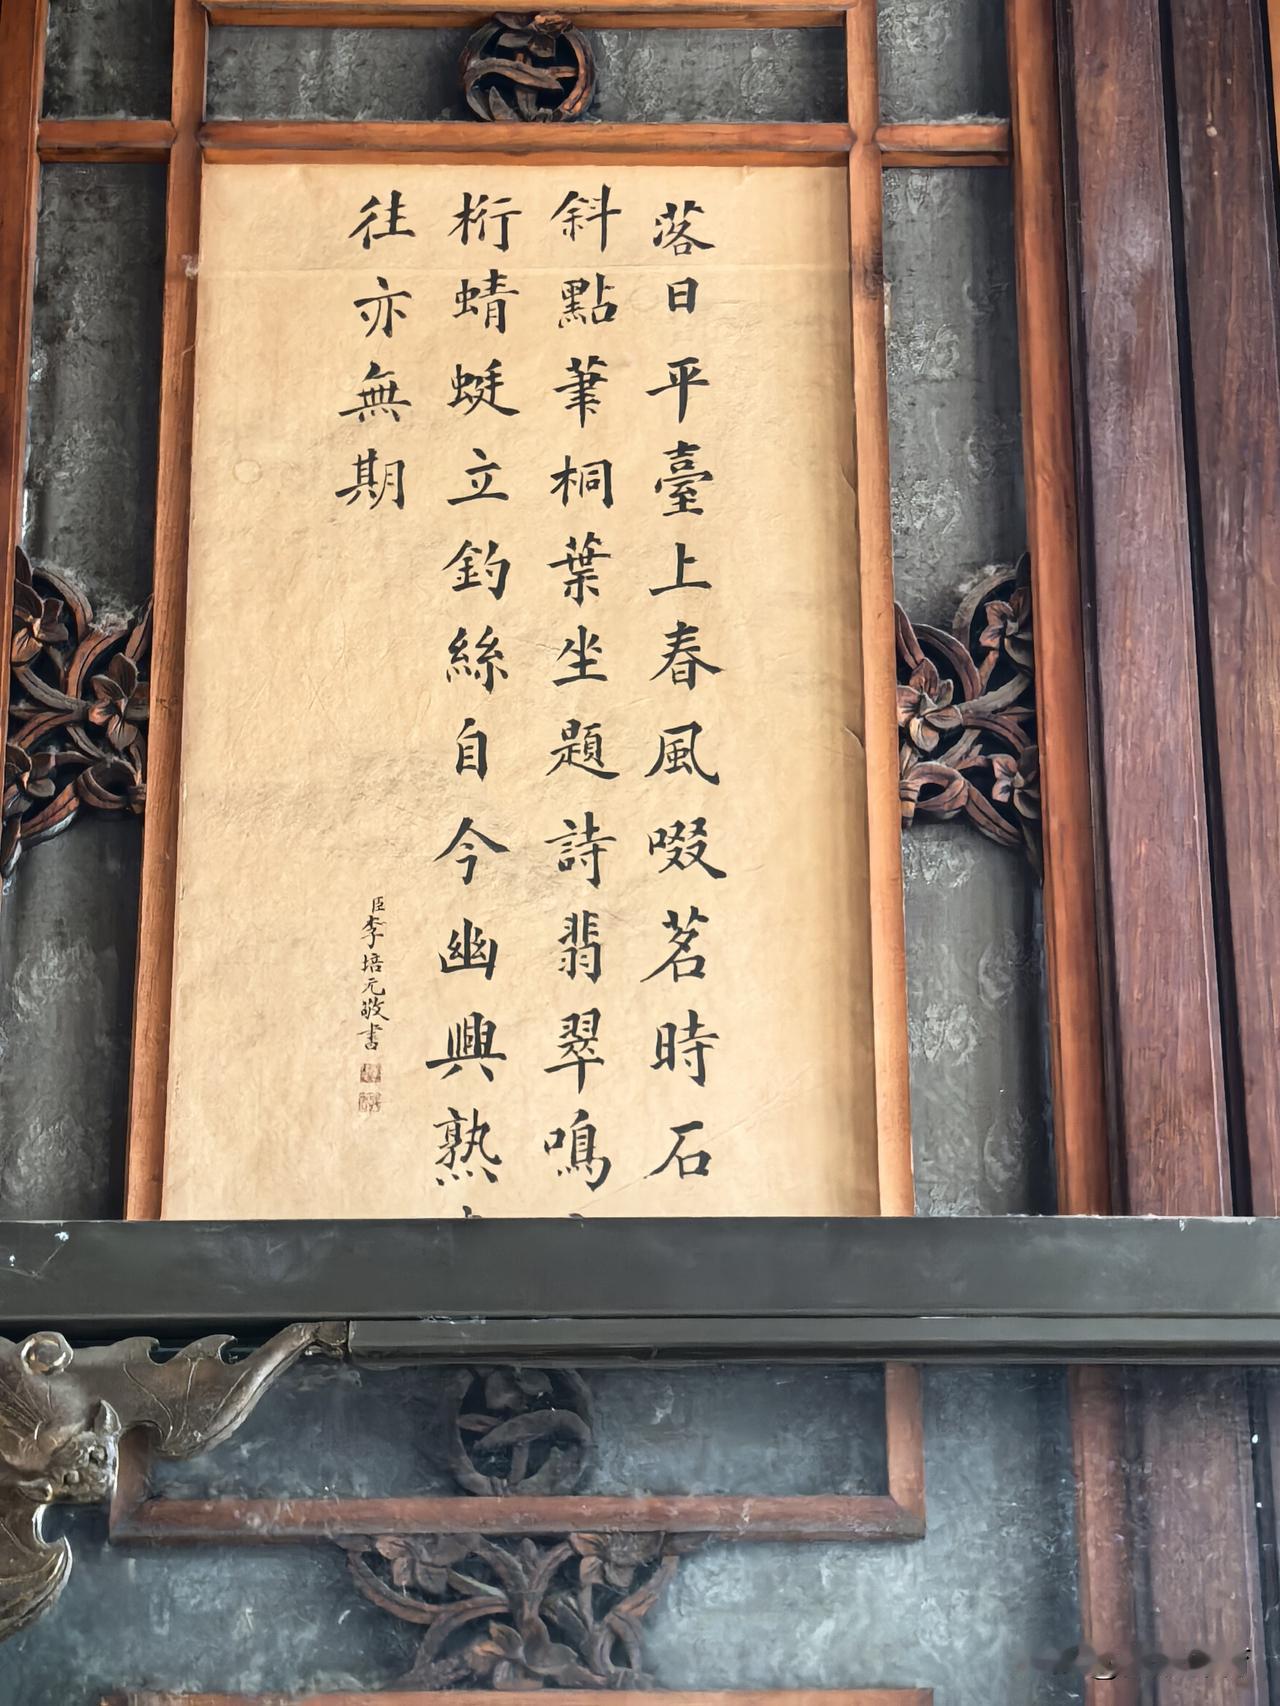 落日平臺上春風啜茗時石
斜點筆桐葉坐題詩翡翠鳴
桁蜻蜓立釣絲自今幽興熟
往亦無期
臣李培元敬書